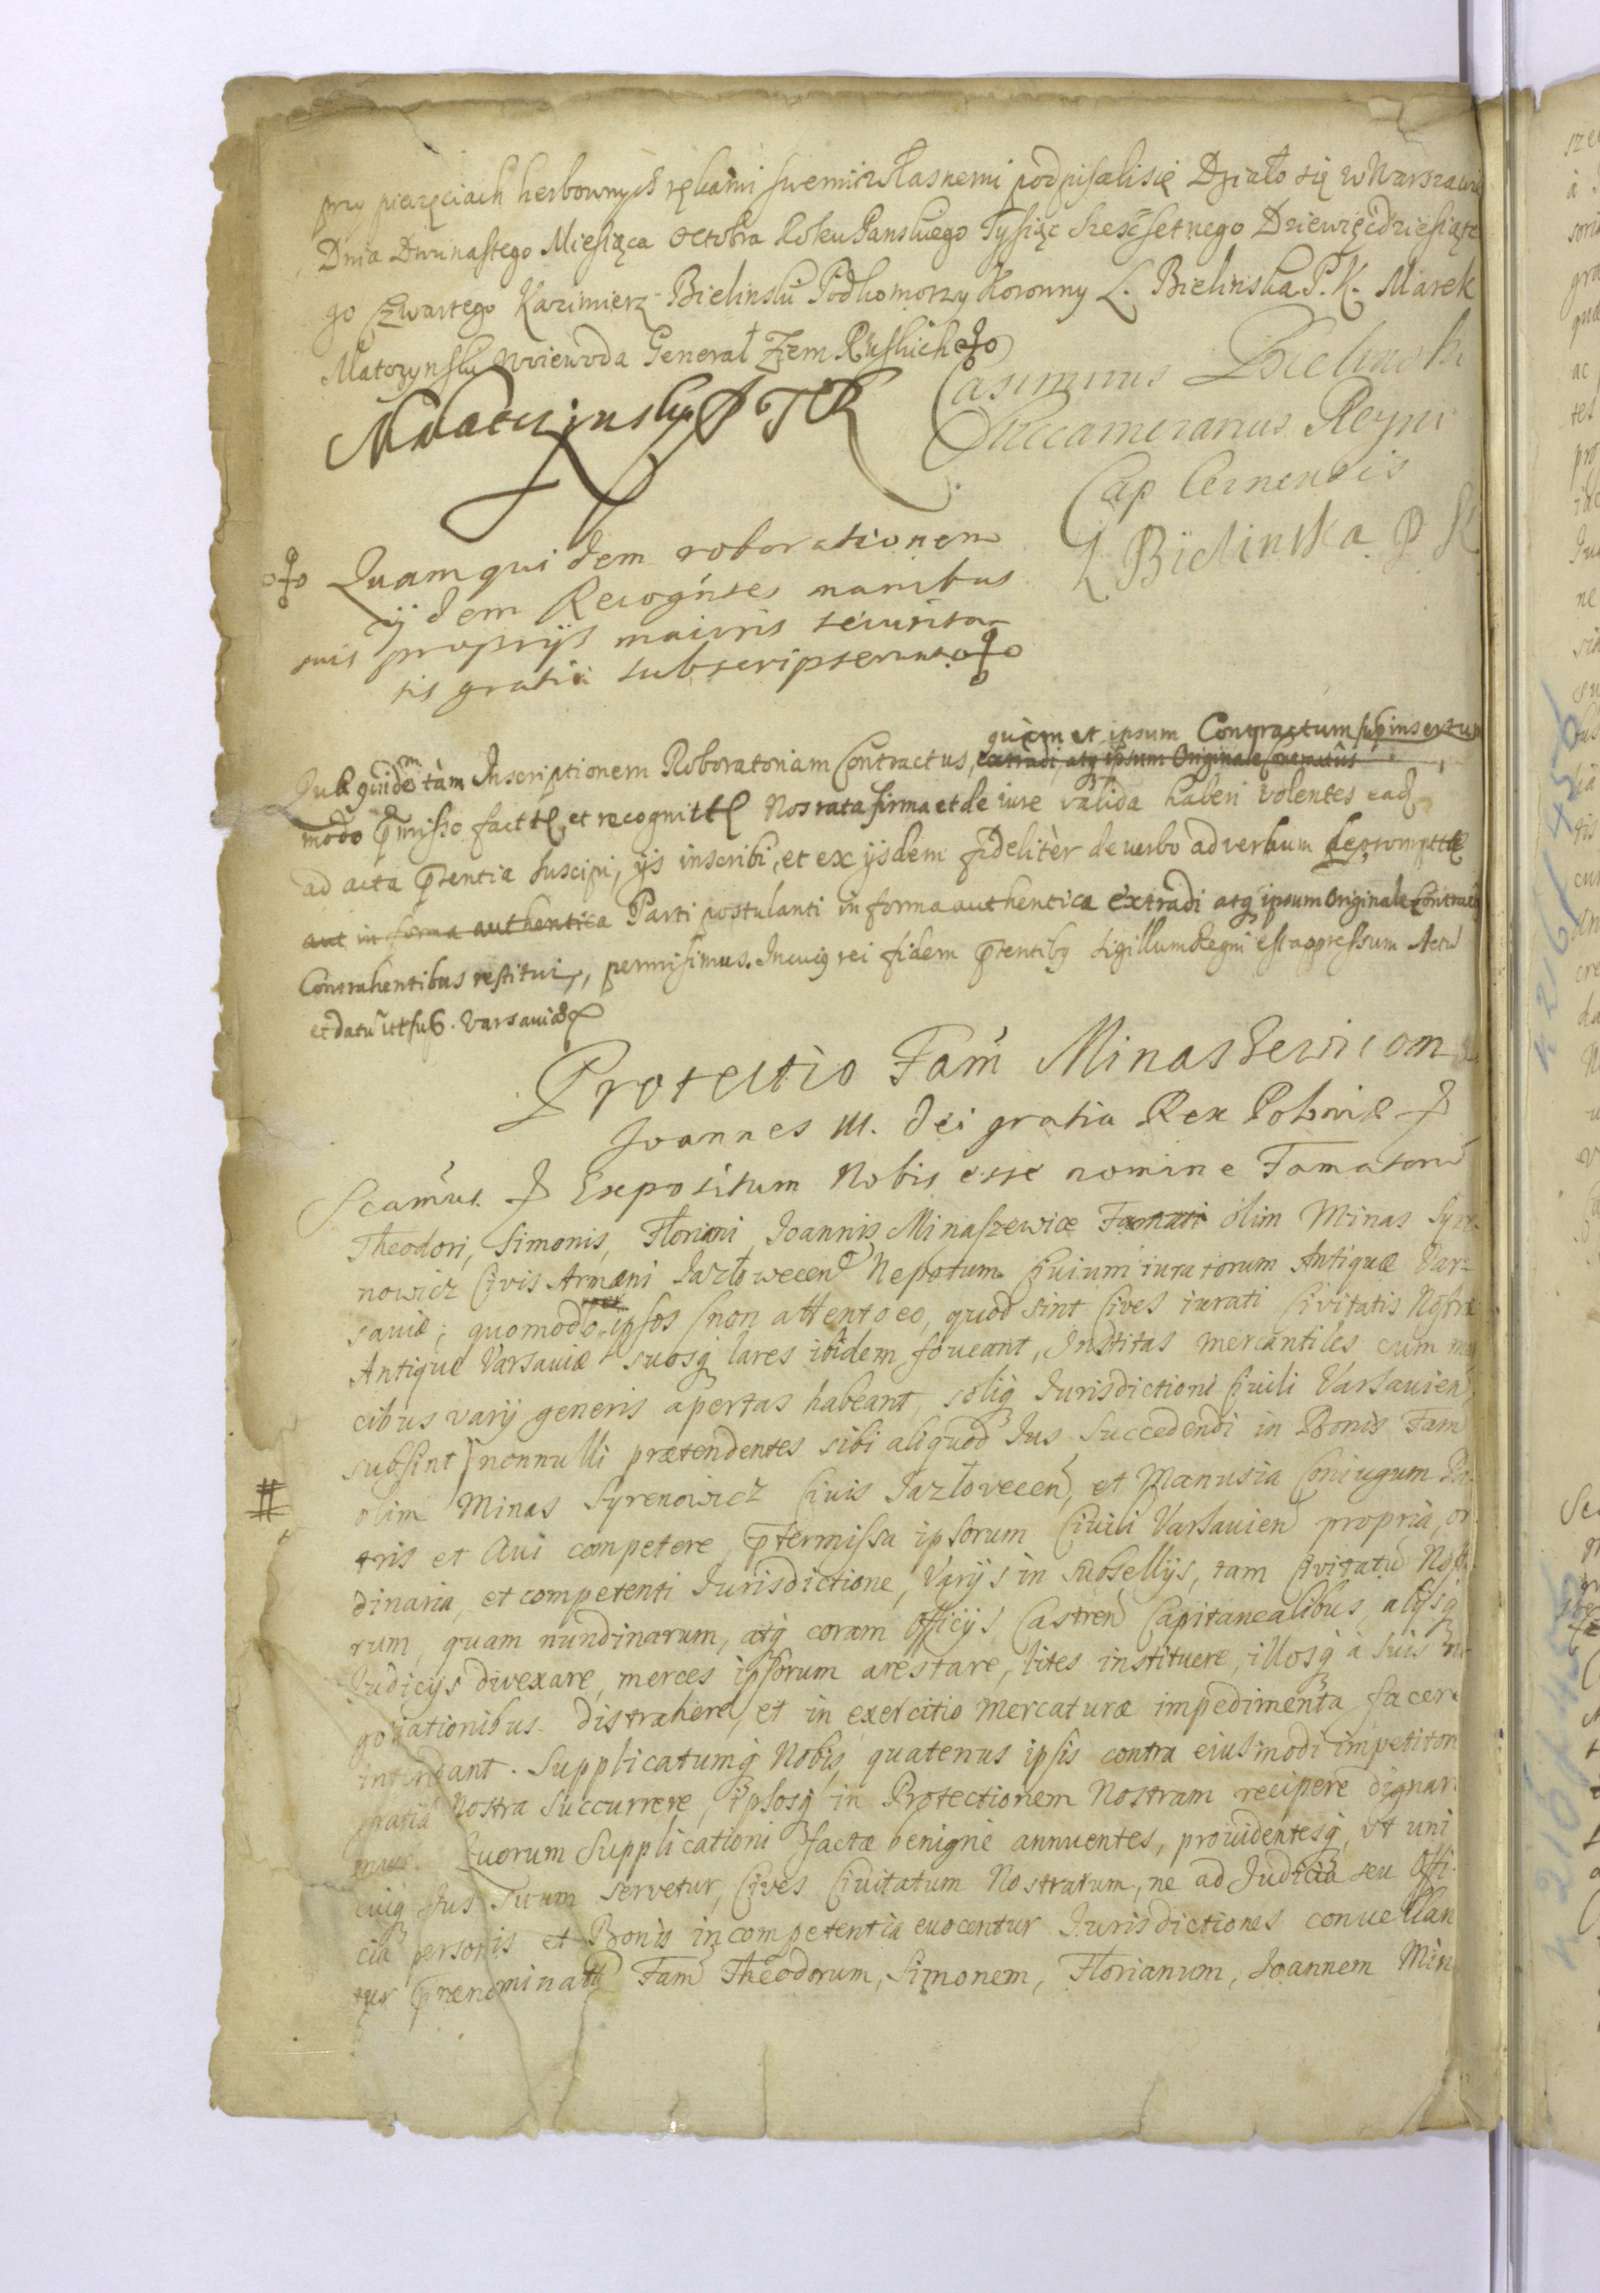 przy pieczęciach herbownych rękami swemi własnemi podpisalisię Działo się w Warszawie
Dnia Dwunastego Miesiąca Octobra Roku Pańskiego Tysiąc Sześćsetnego Dziewięćdziesiąte
go Czwartego Kazimierz Bielinski Podkomorzy Koronny L. Bielinska P. K. Marek
Matczynski Woiewoda Generał Ziem Ruskich
Casimirus Bielinski
MMatczynsky
Succamerarius Regni
Cap Cernensis
L Bielinska P K
Quam quidem roborationem
ijdem Recognñtes manibus
suis proprijs maioris securita
tis gratia subscripserunt
quàm et ipsum Contractum
quidem tàm Inscriptionem Roboratoriam Contractus, extradi atq ipsum Originale
modo pmisso factte et recognitte Nos rata firma et de iure valida haberi volentes ead
ad acta pntia suscipi, ijs inscribi, et ex ijsdem fidelitèr de verbo ad verbum depromptte
aut in forma authentica Parti postulanti in forma authentica extradi atq ipsum Originale
Contrahentibus restitui, permisimus. In cuiq rei fidem pntibq sigillum Regni est appressum Actu
et datu ut sup. Varsaviae
Protectio Fam Minasewicom
Joannes III. Dei gratia Rex Poloniæ
Expositum Nobis esse nomine Famatoru
Theodori, Simonis, Floriani, Joannis Minaszewicze Famati olim Minas Syre
nowicz Civis Armeni Jazłowecen Nepotum Civium iuratorum Antiquæ Var
saviæ; quomodo ipsos (non attento eo, quod sint Cives iurati Civitatis Nostræ
Antiquæ Varsaviæ suosq lares ibidem foveant, Institas mercantiles cum mer
cibus varij generis apertas habeant, soliq Jurisdictioni Civili Varsavien
subsint) nonnulli prætendentes sibi aliquod Ius Succedendi in Bonis Fam
olim Minas Syrenowicz Civis Jazłovecen, et Manusia Coniugum Pa
tris et Avi competere, ptermissa ipsorum Civili Varsavien propria, or
dinaria, et competenti Jurisdictione, Varijs in Subsellijs, tam Civitatu Nost
rum, quam nundinarum, atq coram Officijs Castren Capitanealibus, alijsq
Judicijs divexare, merces ipsorum arestare, lites instituere, illosq à suis ne
gotiationibus distrahere, et in exercitio Mercaturæ impedimenta facere
intendant. Supplicatumq Nobis, quatenus ipsis contra eiusmodi impetitor
gratiâ Nostra Succurrere, ipsosq in Protectionem Nostram recipere dignar
Quorum Supplicationi factæ benignè annuentes, providentesq, ut uni
cuiq Ius Suum servetur, Cives Civitatum Nostrarum, ne ad Judicia seu Offi
cia personis et Bonis incompetentia evocentur Jurisdictiones convellan
tur prænominatt Fam Theodorum, Simonem, Florianum, Joannem Min